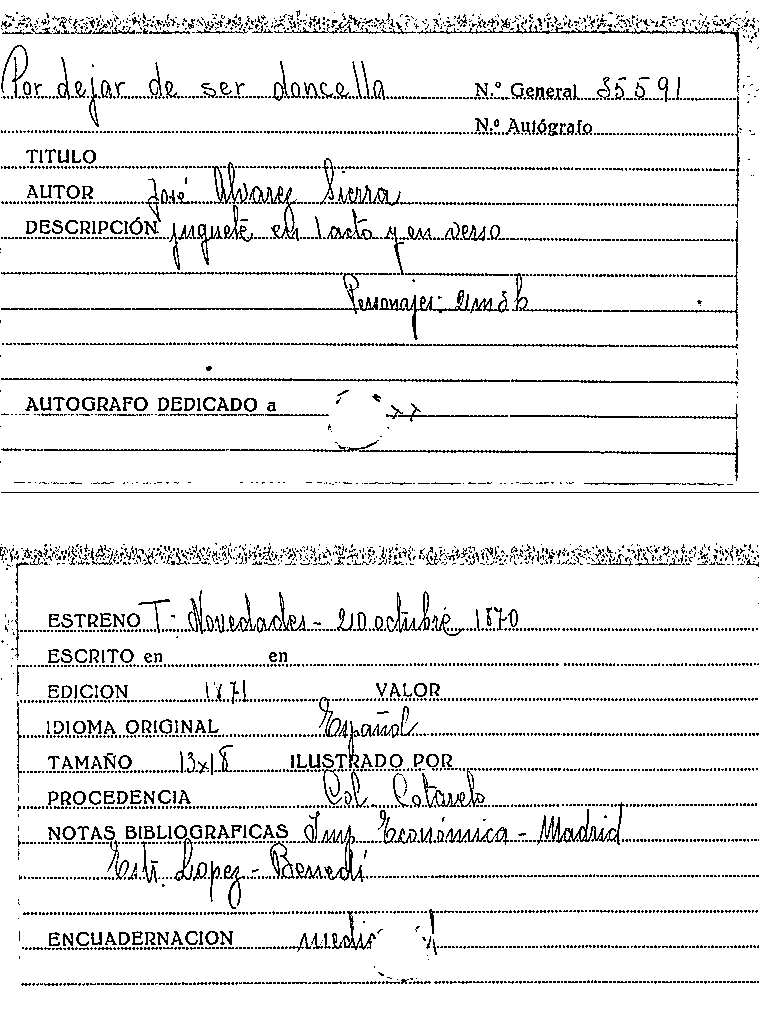 Por dejar de ser doncella N.º General 35591
N.º Autógrafo
TITULO
AUTOR José Alvarez Sierra
DESCRIPCIÓN juguete en 1 acto y en verso
Personajes: 2m 3h
AUTOGRAFO DEDICADO a
ESTRENO T. Novedades - 20 octubre 1870
ESCRITO en en
EDICION 1871 VALOR
IDIOMA ORIGINAL Español
TAMAÑO 13x18 ILUSTRADO POR
PROCEDENCIA Col. Cotarelo
NOTAS BIBLIOGRAFICAS Imp. Económica - Madrid
Estr. Lopez - Benedí
ENCUADERNACION medio